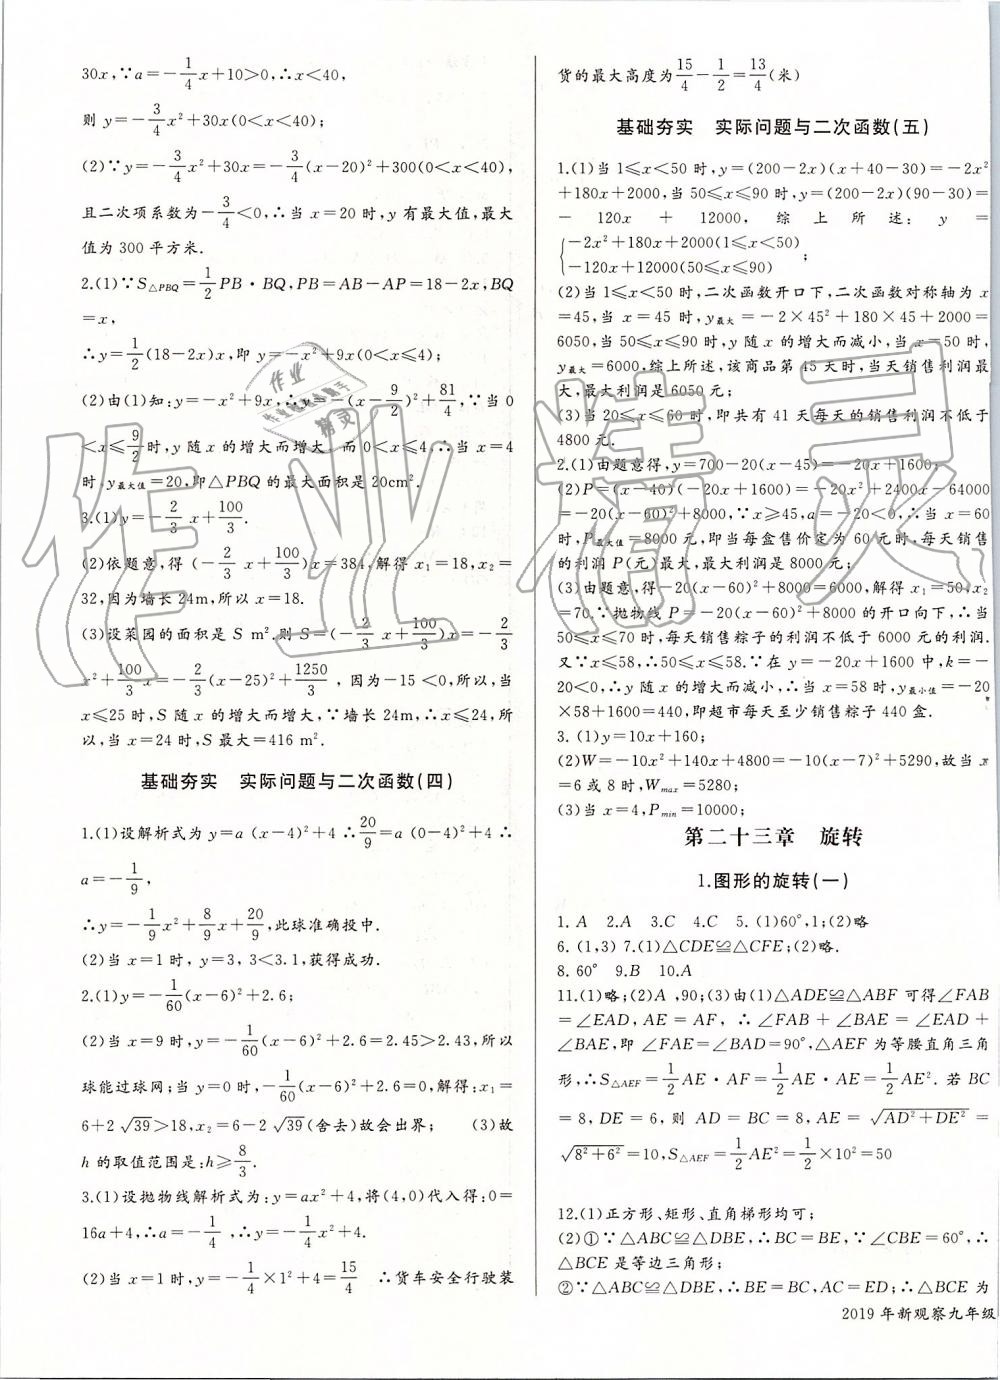 30x,∵a=-1/4x+10>0,∴x<40,
则 y=-3/4x²+30x(0<x<40);
(2)∵y=-3/4x²+30x=-3/4(x-20)²+300(0<x<40),
且二次项系数为-3/4<0,∴当 x=20 时,y 有最大值,最大
值为 300 平方米.
2.(1)∵S△PBQ=1/2PB·BQ,PB=AB-AP=18-2x,BQ
=x,
∴y=1/2(18-2x)x,即 y=-x²+9x(0<x≤4);
(2)由(1)知:y=-x²+9x,∴y=-(x-9/2)²+81/4,∵当 0
<x≤9/2时,y 随 x 的增大而增大,而 0<x≤4,∴当 x=4
时,y最大值=20,即△PBQ 的最大面积是 20cm².
3.(1)y=-2/3x+100/3.
(2)依题意,得 (-2/3x+100/3)x=384,解得 x₁=18,x₂=
32,因为墙长 24m,所以 x=18.
(3)设菜园的面积是 S m².则 S=(-2/3x+100/3)x=-2/3
x²+100/3x=-2/3(x-25)²+1250/3,因为-15<0,所以,当
x≤25 时,S 随 x 的增大而增大,∵墙长 24m,∴x≤24,所
以,当 x=24 时,S 最大=416 m².
基础夯实 实际问题与二次函数(四)
1.(1)设解析式为 y=a (x-4)²+4 ∴20/9=a (0-4)²+4 ∴
a=-1/9,
∴y=-1/9x²+8/9x+20/9,此球准确投中.
(2)当 x=1 时, y=3, 3<3.1,获得成功.
2.(1)y=-1/60(x-6)²+2.6;
(2)当 x=9 时,y=-1/60(x-6)²+2.6=2.45>2.43,所以
球能过球网;当 y=0 时,-1/60(x-6)²+2.6=0,解得:x₁=
6+2√39>18,x₂=6-2√39(舍去)故会出界; (3)故
h 的取值范围是:h≥8/3.
3.(1)设抛物线解析式为:y=ax²+4,将(4,0)代入得:0=
16a+4,∴a=-1/4,∴y=-1/4x²+4.
(2)当 x=1 时,y=-1/4×1²+4=15/4 ∴货车安全行驶装
货的最大高度为15/4-1/2=13/4(米)
基础夯实 实际问题与二次函数(五)
1.(1)当 1≤x<50 时,y=(200-2x)(x+40-30)=-2x²
+180x+2000,当 50≤x≤90 时,y=(200-2x)(90-30)=
- 120x + 12000, 综 上 所 述: y =
{-2x²+180x+2000(1≤x<50)
-120x+12000(50≤x≤90);
(2)当 1≤x<50 时,二次函数开口下,二次函数对称轴为 x
=45,当 x=45 时,y最大=-2×45²+180×45+2000=
6050,当 50≤x≤90 时,y 随 x 的增大而减小,当 x=50 时,
y最大=6000,综上所述,该商品第 45 天时,当天销售利润最
大,最大利润是 6050 元;
(3)当 20≤x≤60 时,即共有 41 天每天的销售利润不低于
4800 元.
2.(1)由题意得,y=700-20(x-45)=-20x+1600;
(2)P=(x-40)(-20x+1600)=-20x²+2400x-64000
=-20(x-60)²+8000,∵x≥45,a=-20<0,∴当 x=60
时,P最大值=8000 元,即当每盒售价定为 60 元时,每天销售
的利润 P(元)最大,最大利润是 8000 元;
(3)由题意,得-20(x-60)²+8000=6000,解得 x₁=50,x₂
=70.∵抛物线 P=-20(x-60)²+8000 的开口向下,∴当
50≤x≤70 时,每天销售粽子的利润不低于 6000 元的利润.
又∵x≤58,∴50≤x≤58.∵在 y=-20x+1600 中,k=-
20<0,∴y 随 x 的增大而减小,∴当 x=58 时,y最小值=-20
×58+1600=440,即超市每天至少销售粽子 440 盒.
3. (1)y=10x+160;
(2)W=-10x²+140x+4800=-10(x-7)²+5290,故当 x
=6 或 8 时,Wmax=5280;
(3)当 x=4,Pmin=10000;
第二十三章 旋转
1.图形的旋转(一)
1. A 2.A 3.C 4.C 5.(1)60°,1;(2)略
6. (1,3) 7.(1)△CDE≌△CFE;(2)略.
8. 60° 9.B 10.A
11.(1)略;(2)A,90;(3)由(1)△ADE≌△ABF 可得∠FAB
=∠EAD, AE = AF, ∴∠FAB + ∠BAE = ∠EAD +
∠BAE,即∠FAE=∠BAD=90°,△AEF 为等腰直角三角
形,∴S△AEF=1/2AE·AF=1/2AE·AE=1/2AE². 若 BC
= 8, DE = 6, 则 AD = BC = 8, AE = √AD²+DE² =
√8²+6²=10,S△AEF=1/2AE²=1/2×10²=50
12.(1)正方形、矩形、直角梯形均可;
(2)①∵△ABC≌△DBE,∴BC=BE,∵∠CBE=60°,∴
△BCE 是等边三角形;
②∵△ABC≌△DBE,∴BE=BC,AC=ED;∴△BCE 为
2019 年新观察九年级
作业精灵
作业精灵